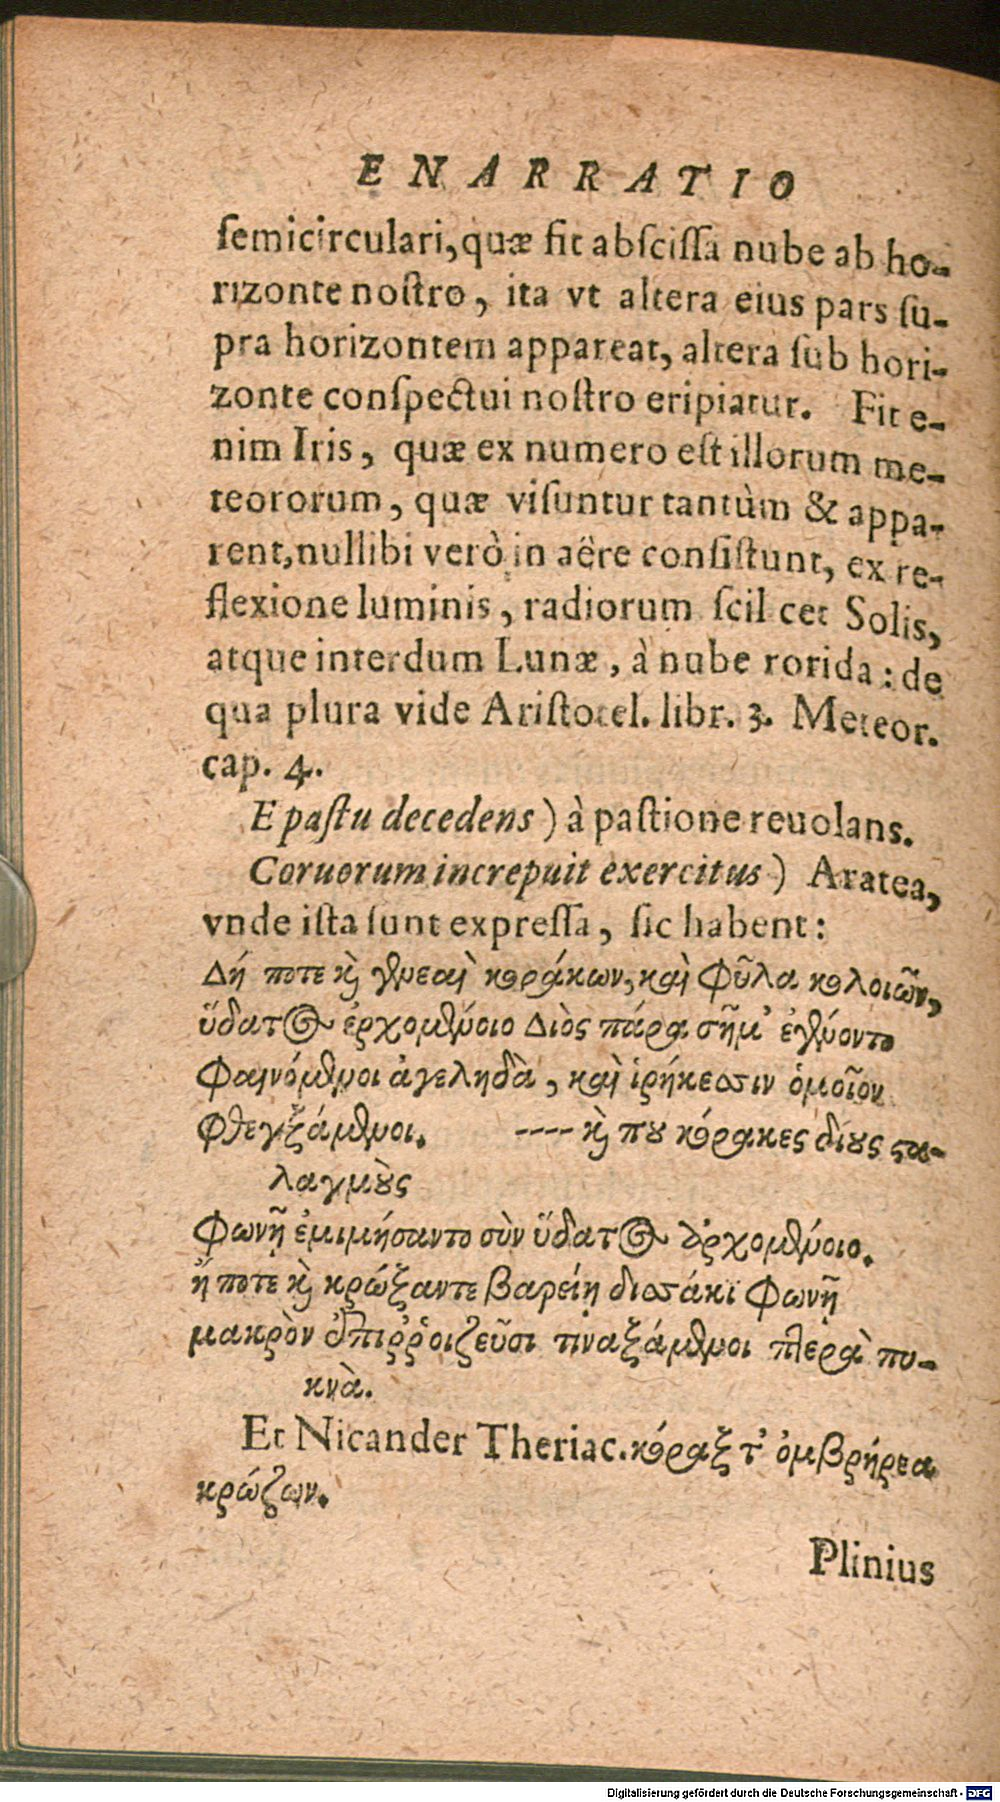 ENARRATIO
semicirculari, quæ fit abscissa nube ab ho-
rizonte nostro, ita vt altera eius pars su-
pra horizontem appareat, altera sub hori-
zonte conspectui nostro eripiatur. Fit e-
nim Iris, quæ ex numero est illorum me-
teororum, quæ visuntur tantùm & appa-
rent, nullibi verò in aëre consistunt, ex re-
flexione luminis, radiorum scil cet Solis,
atque interdum Lunæ, à nube rorida: de
qua plura vide Aristotel. libr. 3. Meteor.
cap. 4.
E pastu decedens) à pastione reuolans.
Coruorum increpuit exercitus) Aratea,
vnde ista sunt expressa, sic habent:
Δή ποτε καὶ γενεαὶ κοράκων, καὶ φῦλα κολοιῶν,
ὕδατος ἐρχομένοιο Διὸς πάρα σῆμ' ἐγένοντο
Φαινόμενοι ἀγεληδὰ, καὶ ἰρήκεσσιν ὁμοῖον
Φθεγξάμενοι. ---- καὶ που κόρακες δίους στα-
λαγμοὺς
Φωνῇ ἐμιμήσαντο σὺν ὕδατος ἐρχομένοιο.
ἤ ποτε καὶ κρώξαντε βαρείῃ δισσάκι φωνῇ
μακρὸν ἐπιῤῥοιζεῦσι τιναξάμενοι πτερὰ πυ-
κνὰ.
Et Nicander Theriac. κόραξ τ' ὀμβρήρεα
κρώζων.
Plinius
Digitalisierung gefördert durch die Deutsche Forschungsgemeinschaft - DFG